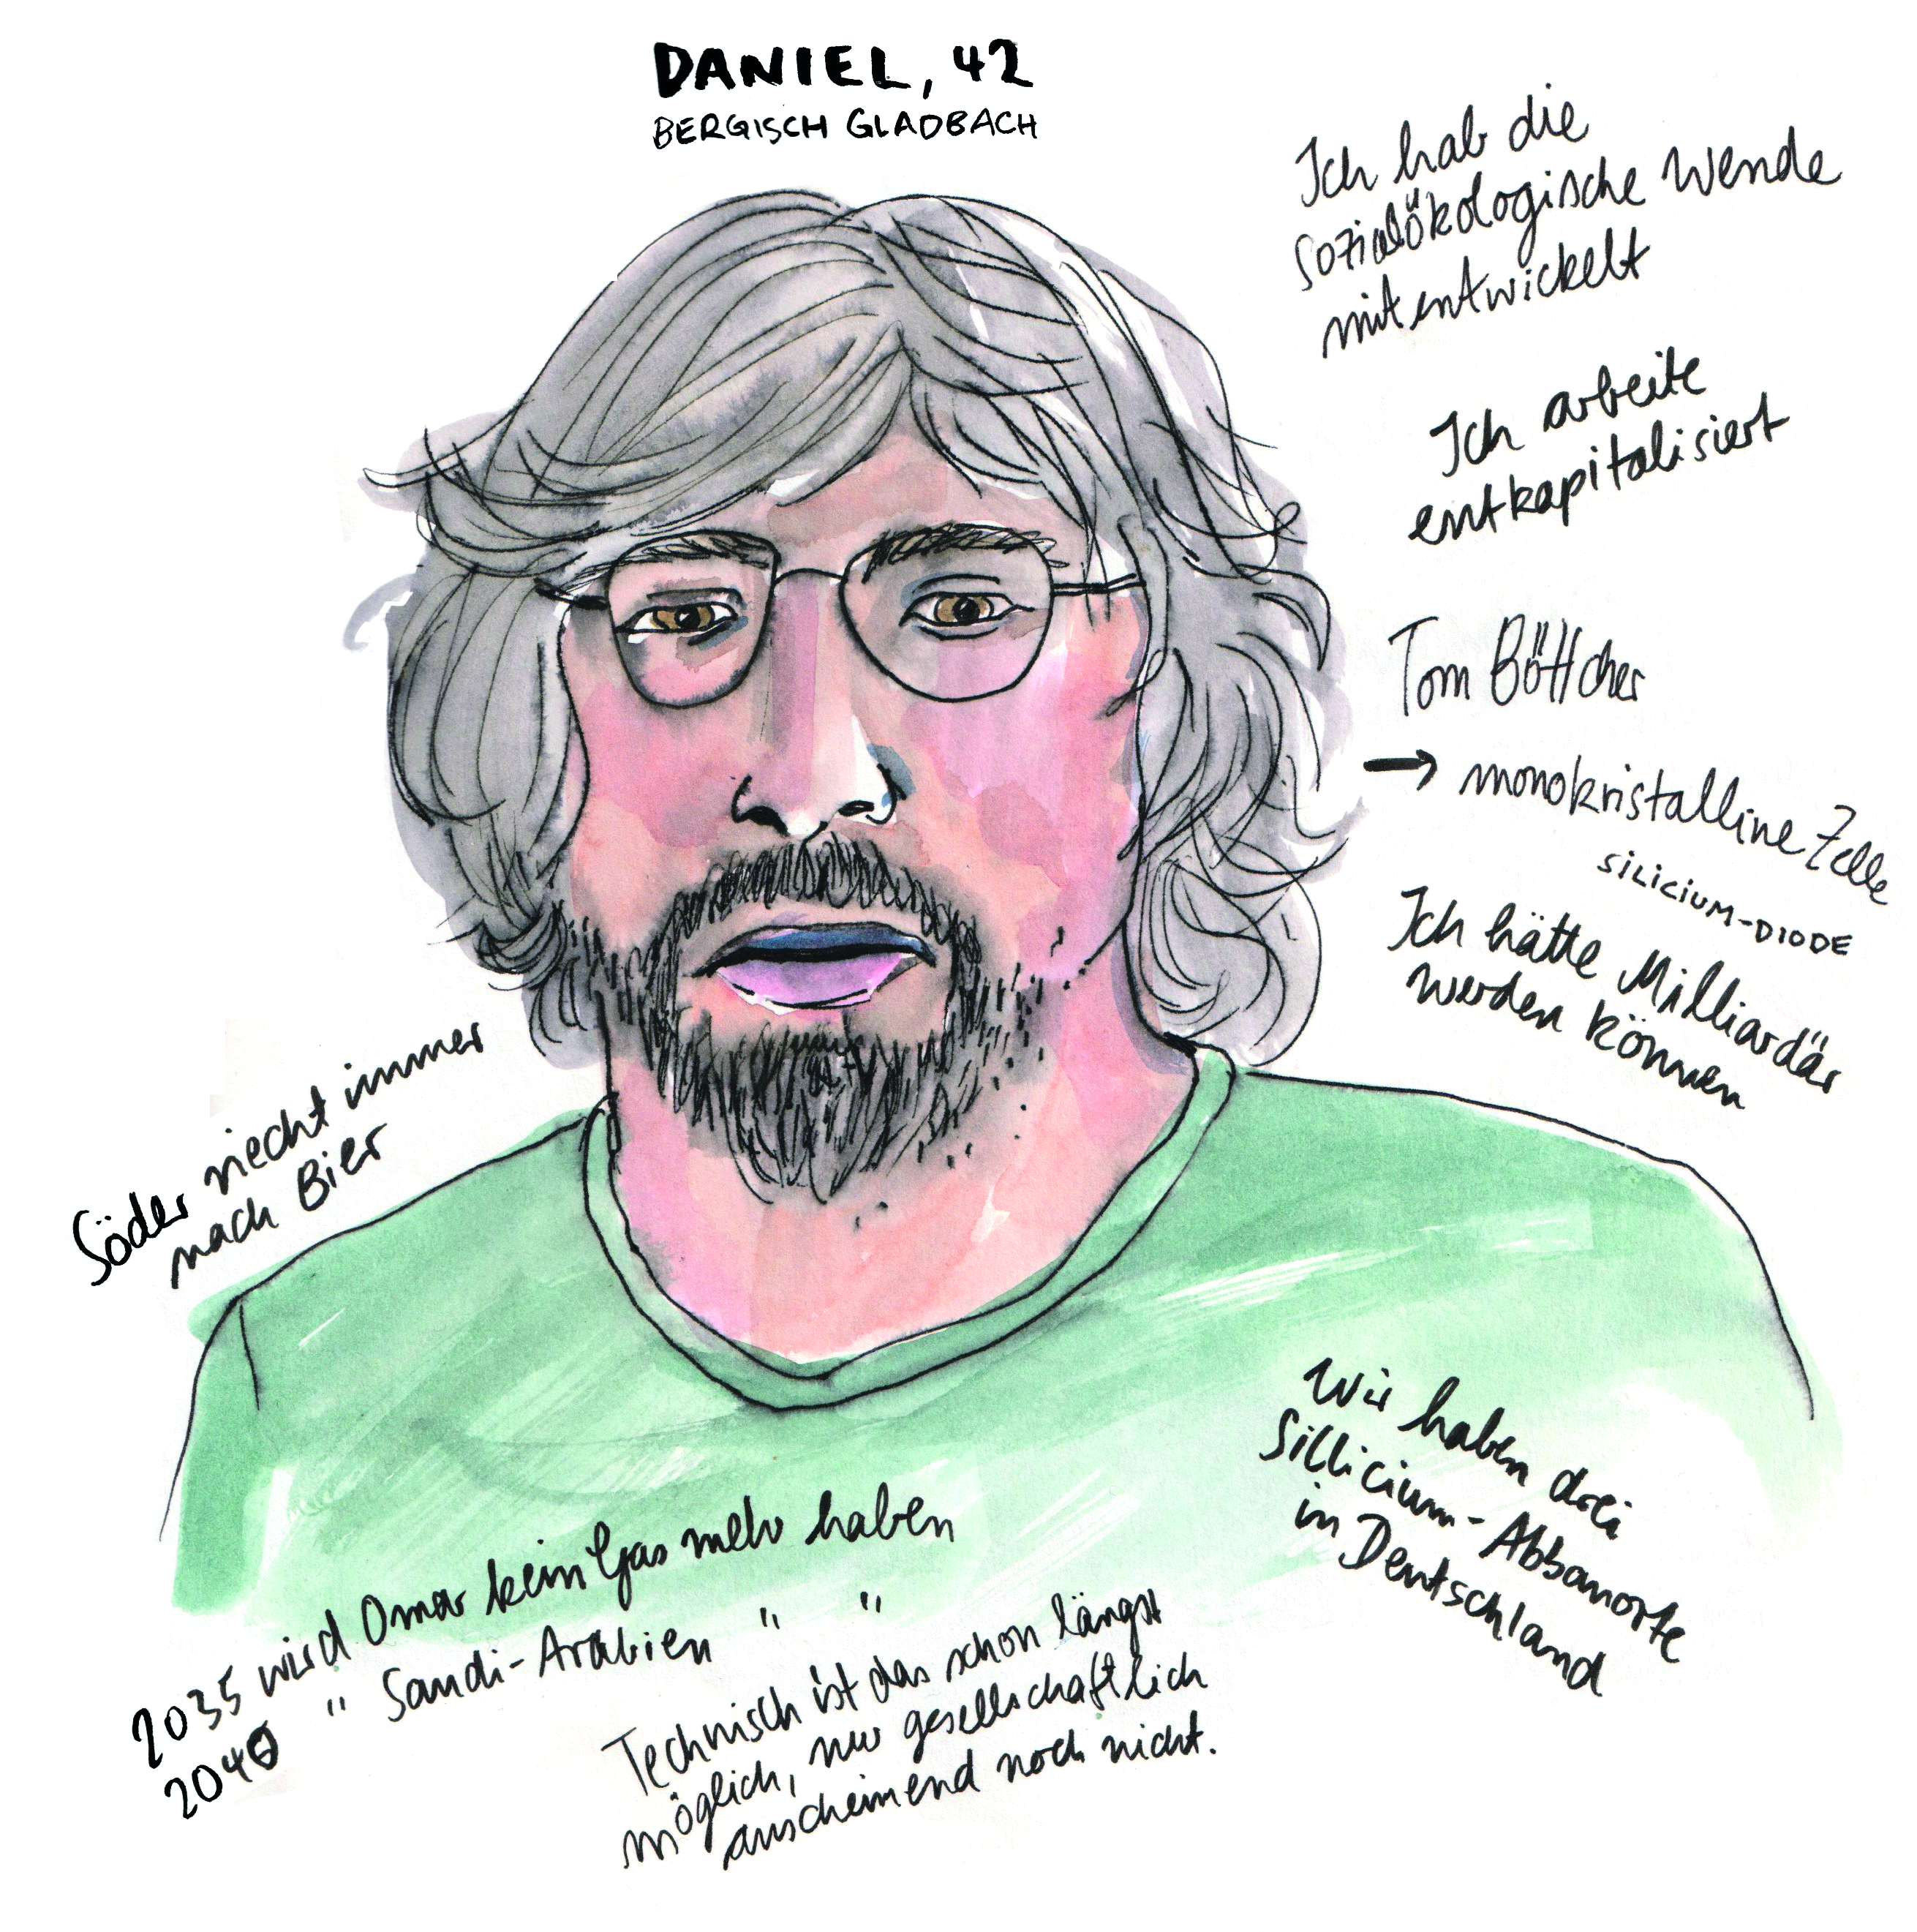 DANIEL, 42
BERGISCH GLADBACH
Ich hab die
sozialökologische Wende
mit entwickelt
Ich arbeite
entkapitalisiert
Tom Böttcher
→ monokristalline Zelle
SILICIUM-DIODE
Ich hätte Milliardär
werden können
Söder riecht immer
nach Bier
Wir haben drei
Sillicium-Abbauorte
in Deutschland
2035 wird Omar kein Gas mehr haben
2040 " Saudi-Arabien " "
Technisch ist das schon längst
möglich, nur gesellschaftlich
anscheinend noch nicht.